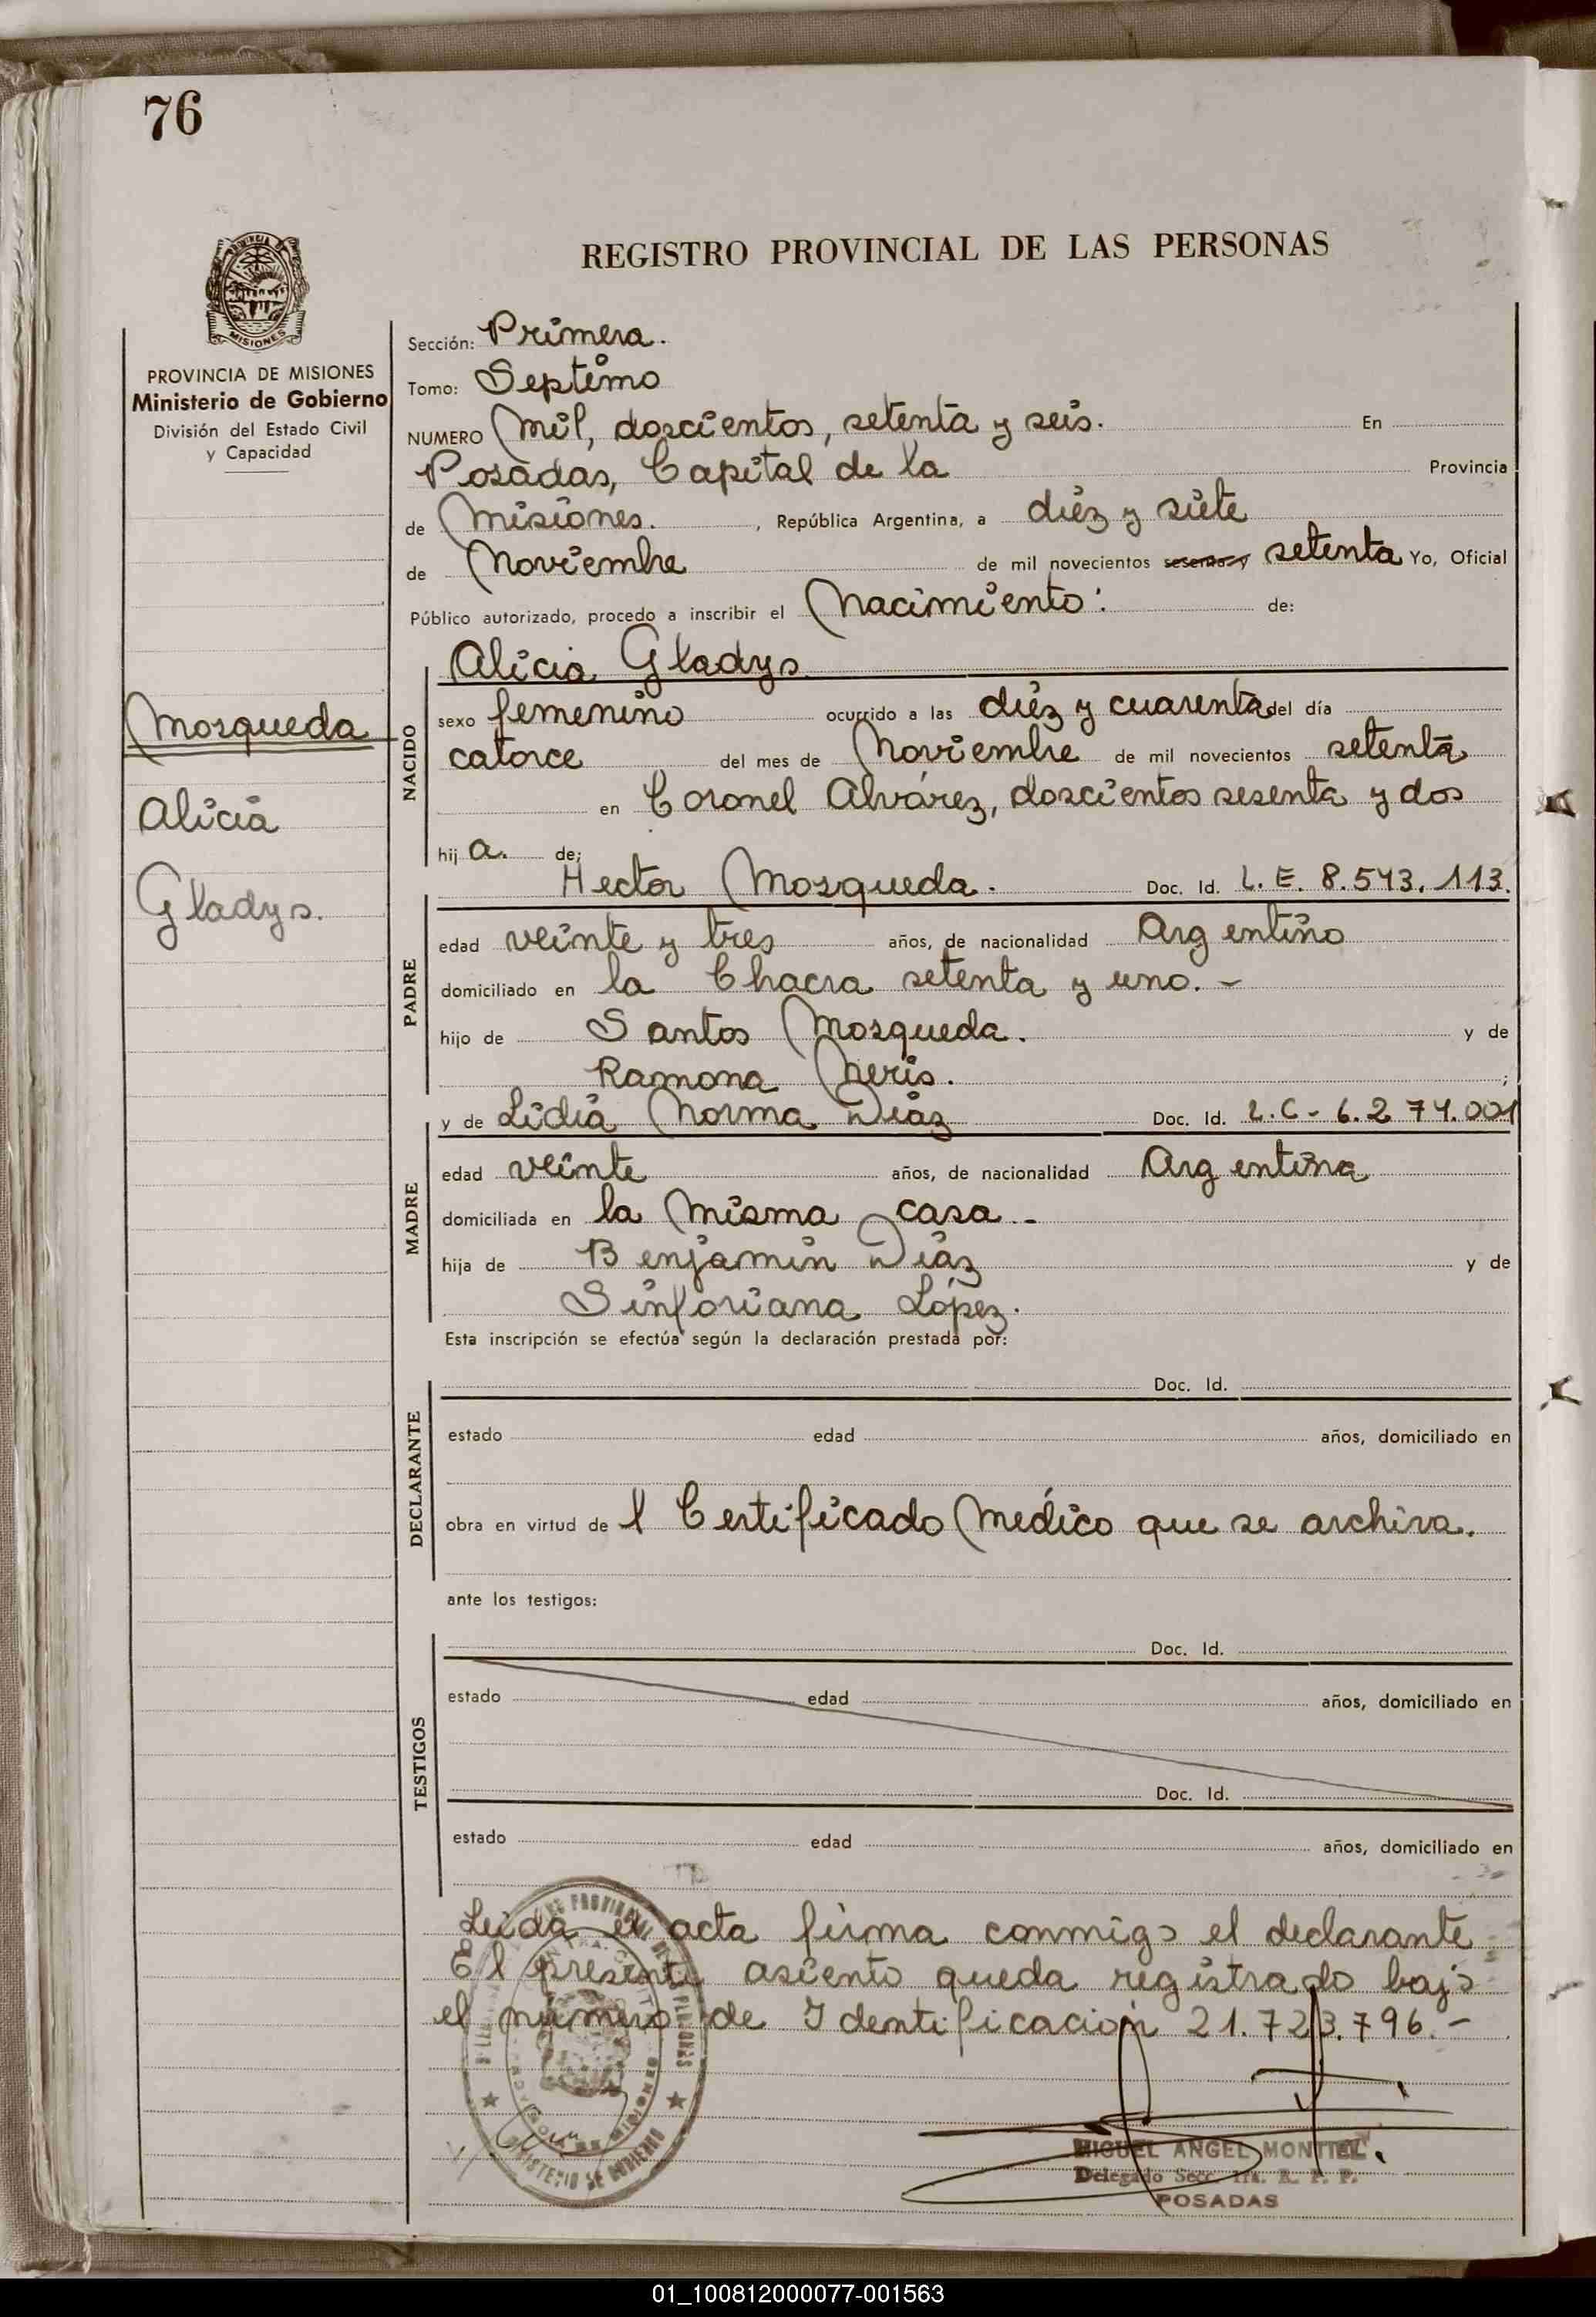 76
PROVINCIA DE
MISIONES
REGISTRO PROVINCIAL DE LAS PERSONAS
PROVINCIA DE MISIONES
Ministerio de Gobierno
División del Estado Civil
y Capacidad
Mosqueda
Alicia
Gladys.
Sección: Primera.
Tomo: Septimo
NUMERO Mil, doscientos, setenta y seis. En
Posadas, Capital de la Provincia
de Misiones. , República Argentina, a diéz y siete
de Noviembre de mil novecientos sesenta y setenta Yo, Oficial
Público autorizado, procedo a inscribir el Nacimiento: de:
Alicia Gladys
NACIDO
sexo femenino ocurrido a las diéz y cuarenta del día
catorce del mes de Noviembre de mil novecientos setenta
en Coronel Alvárez, doscientos sesenta y dos
hij a. de;
Hector Mosqueda. Doc. Id. L. E. 8.543.113.
PADRE
edad veinte y tres años, de nacionalidad Argentino
domiciliado en la Chacra setenta y uno. -
hijo de Santos Mosqueda. y de
Ramona Neris. ;
y de Lidia Norma Diaz Doc. Id. L.C - 6.274.001
MADRE
edad veinte años, de nacionalidad Argentina
domiciliada en la misma casa. -
hija de Benjamin Diaz y de
Sinforiana López.
Esta inscripción se efectúa según la declaración prestada por:
Doc. Id.
DECLARANTE
estado edad años, domiciliado en
obra en virtud de l Certificado Médico que se archiva.
ante los testigos:
Doc. Id.
TESTIGOS
estado edad años, domiciliado en
Doc. Id.
estado edad años, domiciliado en
Leida el acta firma conmigo el declarante
El presente asiento queda registrado bajo
el número de Identificación 21.723.796. -
MIGUEL ANGEL MONTIEL
Delegado Secc. 1ra. R. P. P.
POSADAS
01_100812000077-001563